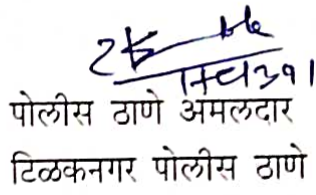 पोलीस ठाणे अमलदार
टिळकनगर पोलीस ठाणे